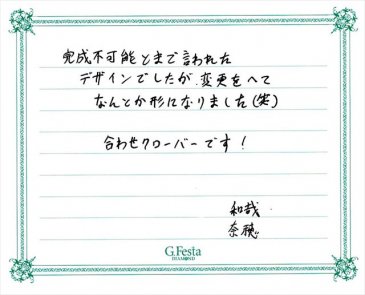 完成不可能とまで言われた
デザインでしたが、変更をへて
なんとか形になりました(笑)
合わせクローバーです!
和哉
奈穂
G.Festa
DIAMOND